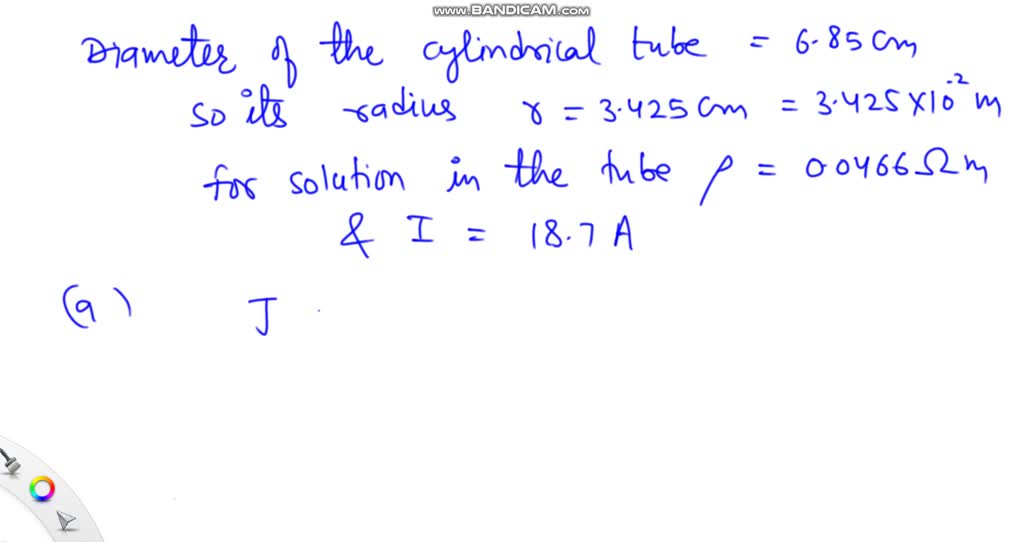 www.BANDICAM.com
Diameter of the cylindrical tube = 6.85 cm
so its radius r = 3.425 cm = 3.425 × 10⁻² m
for solution in the tube ρ = 0.0466 Ω m
& I = 18.7 A
(a) J